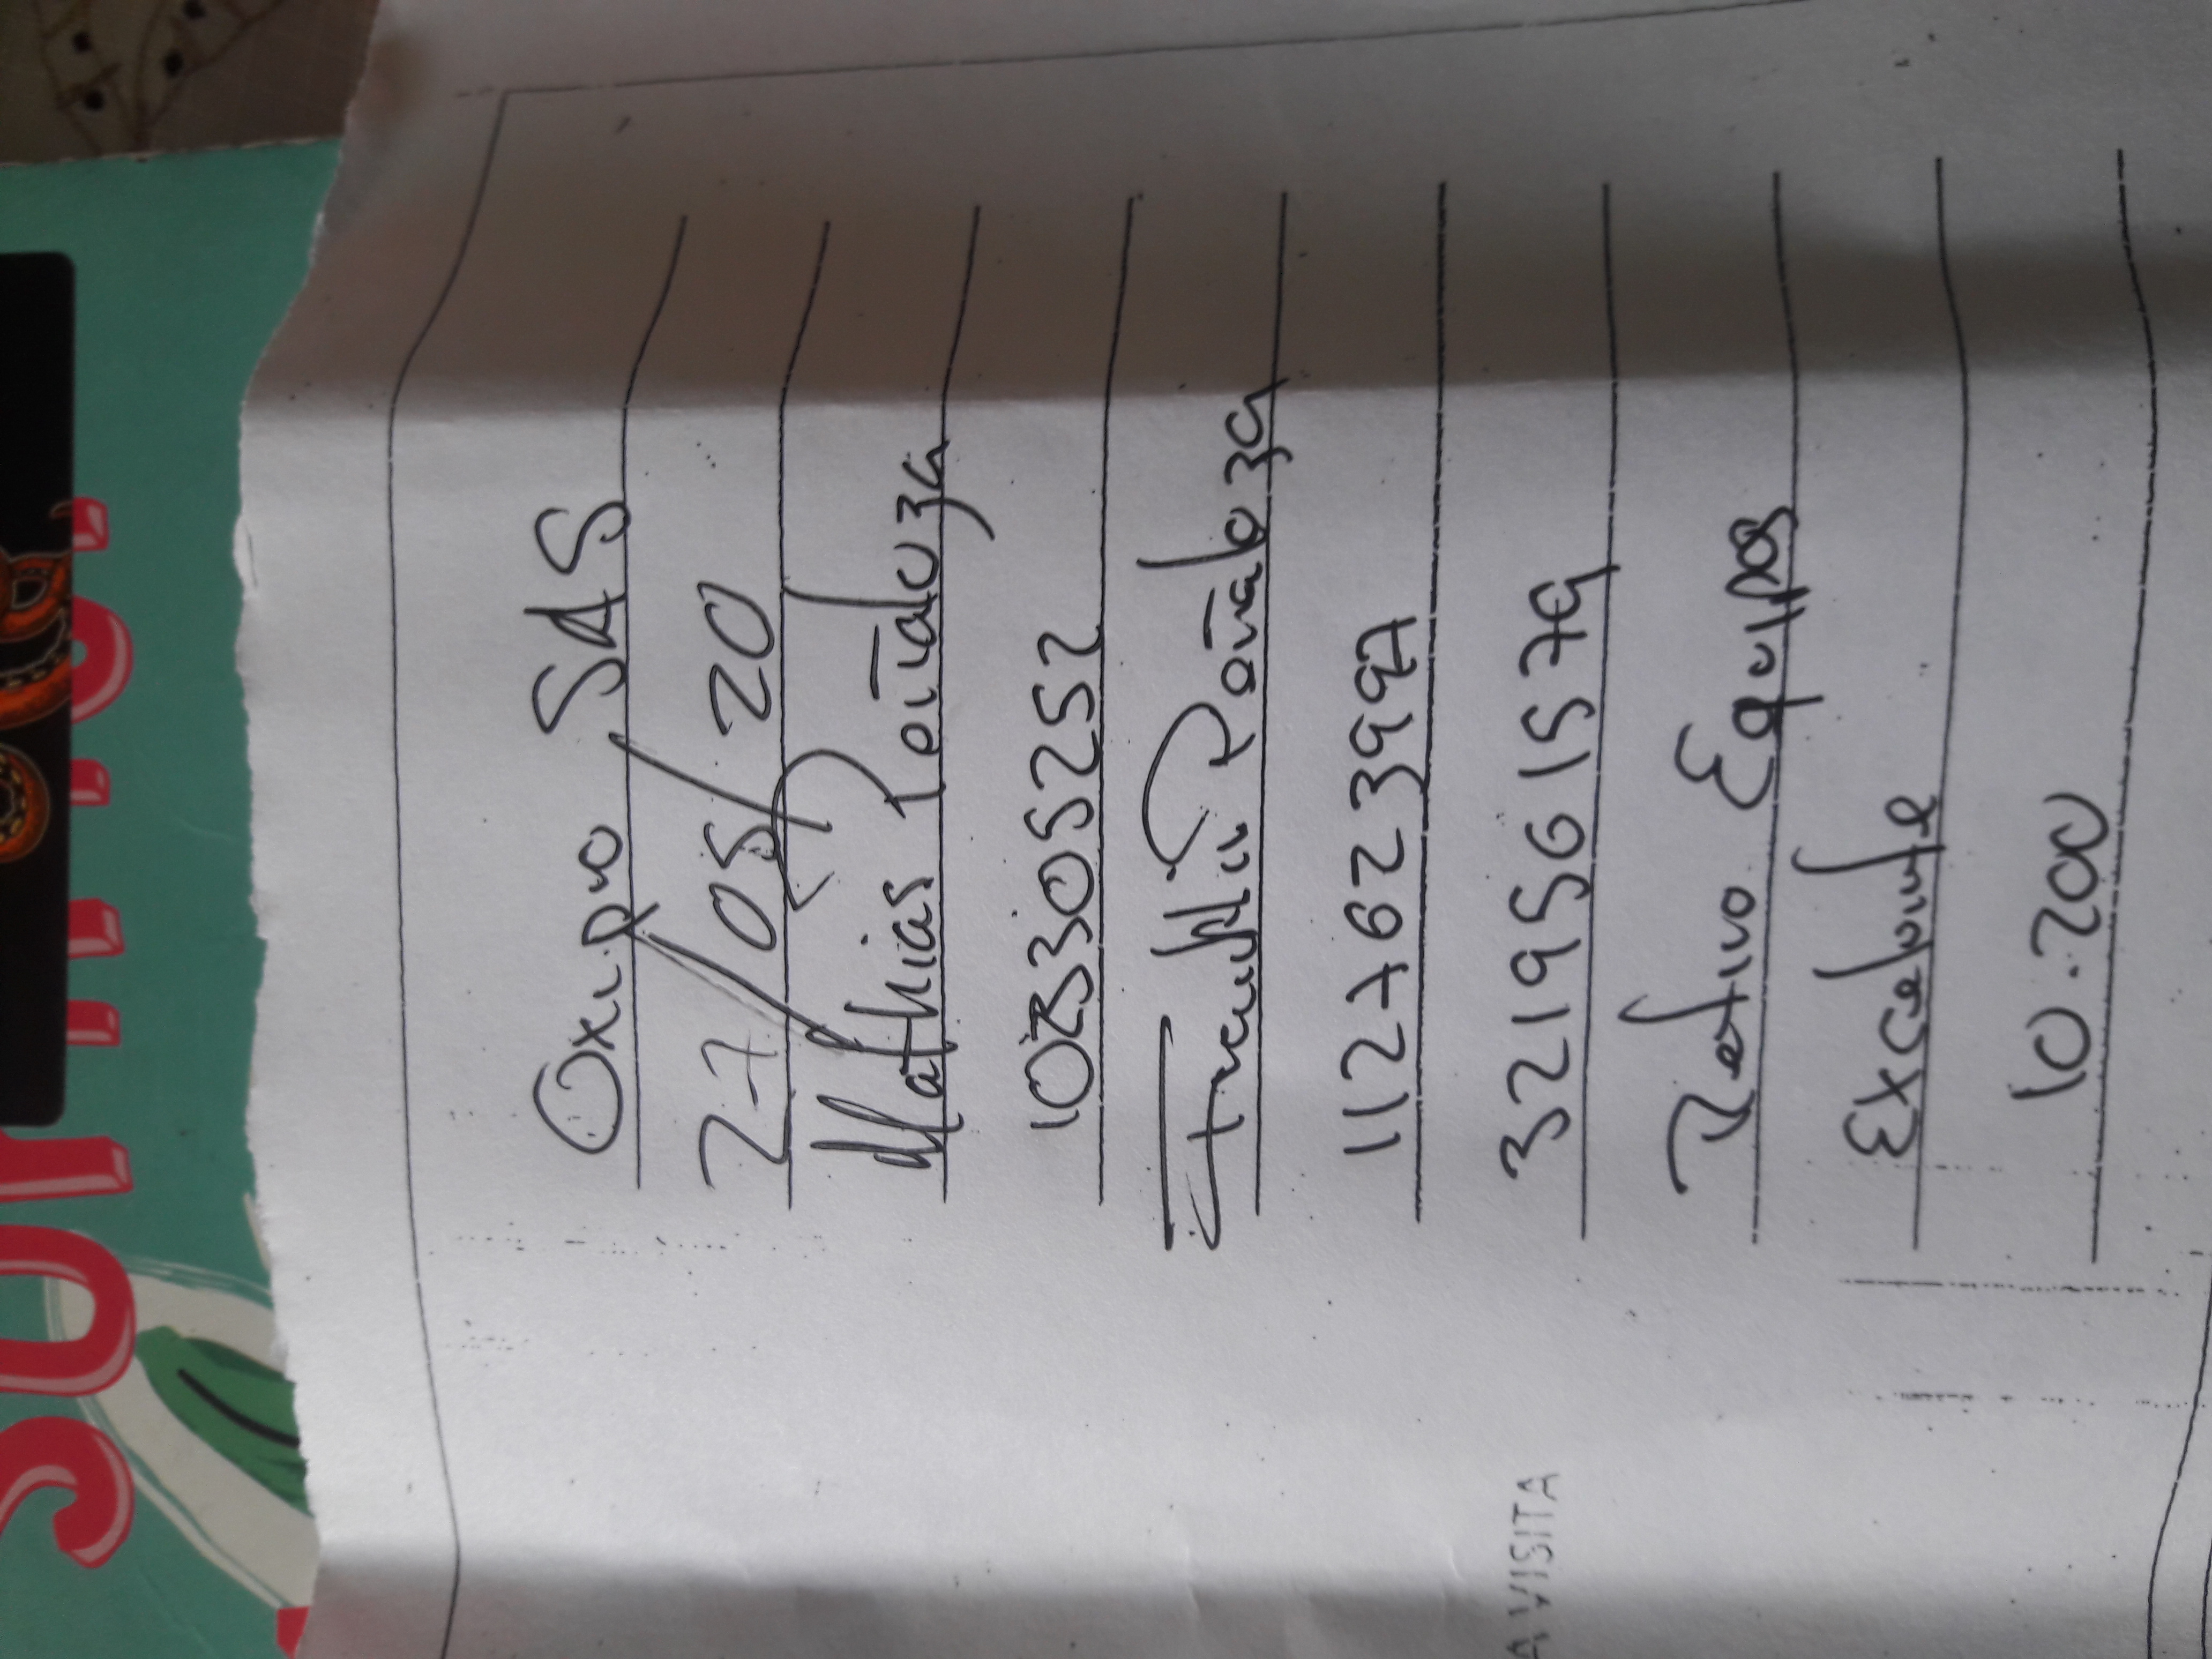 Oxipro SAS
27/05/20
Mathias Peñaloza
1023305252
Franklin Peñaloza
1127623997
3219561579
Retiro Equipos
Excelente
10.200
A VISITA